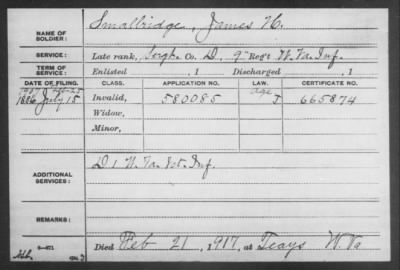 NAME OF SOLDIER: Smallridge, James H.
SERVICE: Late rank, Sergt. Co. D, 9" Reg't W. Va. Inf.
TERM OF SERVICE: Enlisted , 1 Discharged , 1
DATE OF FILING. CLASS. APPLICATION NO. LAW. CERTIFICATE NO.
age
1886 July 15 Invalid, 580085 J 665874
Widow,
Minor,
ADDITIONAL SERVICES: D 1 W. Va. Vet. Inf.
REMARKS:
Died Feb 21, 1917, at Teays W. Va